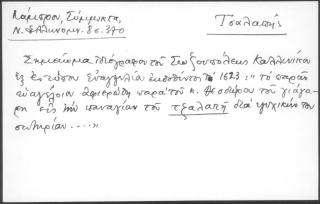 Λάμπρου, Σύμμικτα,
Ν. Ἑλληνομν. 8ος, 370
Τσαλαπῆς
Σημείωμα ἰδιόγραφον τοῦ Σωζουπόλεως Καλλινίκου
ἐξ ἐντύπου Εὐαγγελίου ἐκδοθέντος τῷ 1623: "Τὸ παρὸν
εὐαγγέλιον ἀφιερώθη παρὰ τοῦ κ. Θεοδώρου τοῦ γιάγα-
ρη εἰς τὴν παναγίαν τοῦ τζαλαπῆ διὰ ψυχικήν του
σωτηρίαν ....."